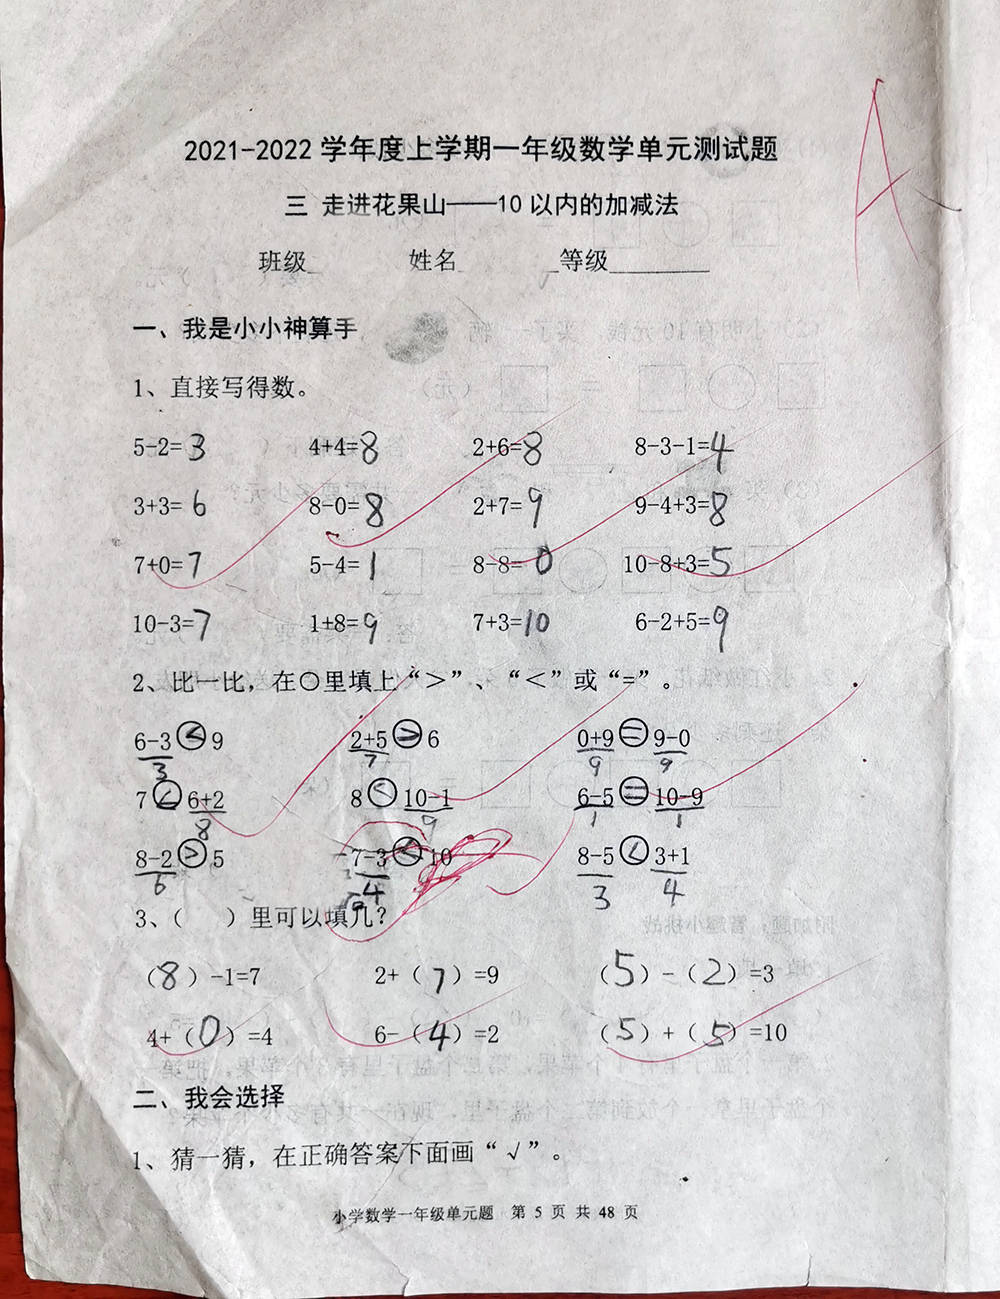 2021-2022 学年度上学期一年级数学单元测试题
三 走进花果山——10 以内的加减法
班级 姓名 等级
A
一、我是小小神算手
1、直接写得数。
5-2=3 4+4=8 2+6=8 8-3-1=4
3+3=6 8-0=8 2+7=9 9-4+3=8
7+0=7 5-4=1 8-8=0 10-8+3=5
10-3=7 1+8=9 7+3=10 6-2+5=9
2、比一比，在○里填上“＞”、“＜”或“=”。
6-3<9 2+5>6 0+9=9-0
3 7 9 9
7<6+2 8<10-1 6-5=10-9
8 9 1 1
8-2>5 7-3<10 8-5<3+1
6 4 3 4
3、（ ）里可以填几？
（8）-1=7 2+（7）=9 （5）-（2）=3
4+（0）=4 6-（4）=2 （5）+（5）=10
二、我会选择
1、猜一猜，在正确答案下面画“√”。
小学数学一年级单元题 第 5 页 共 48 页